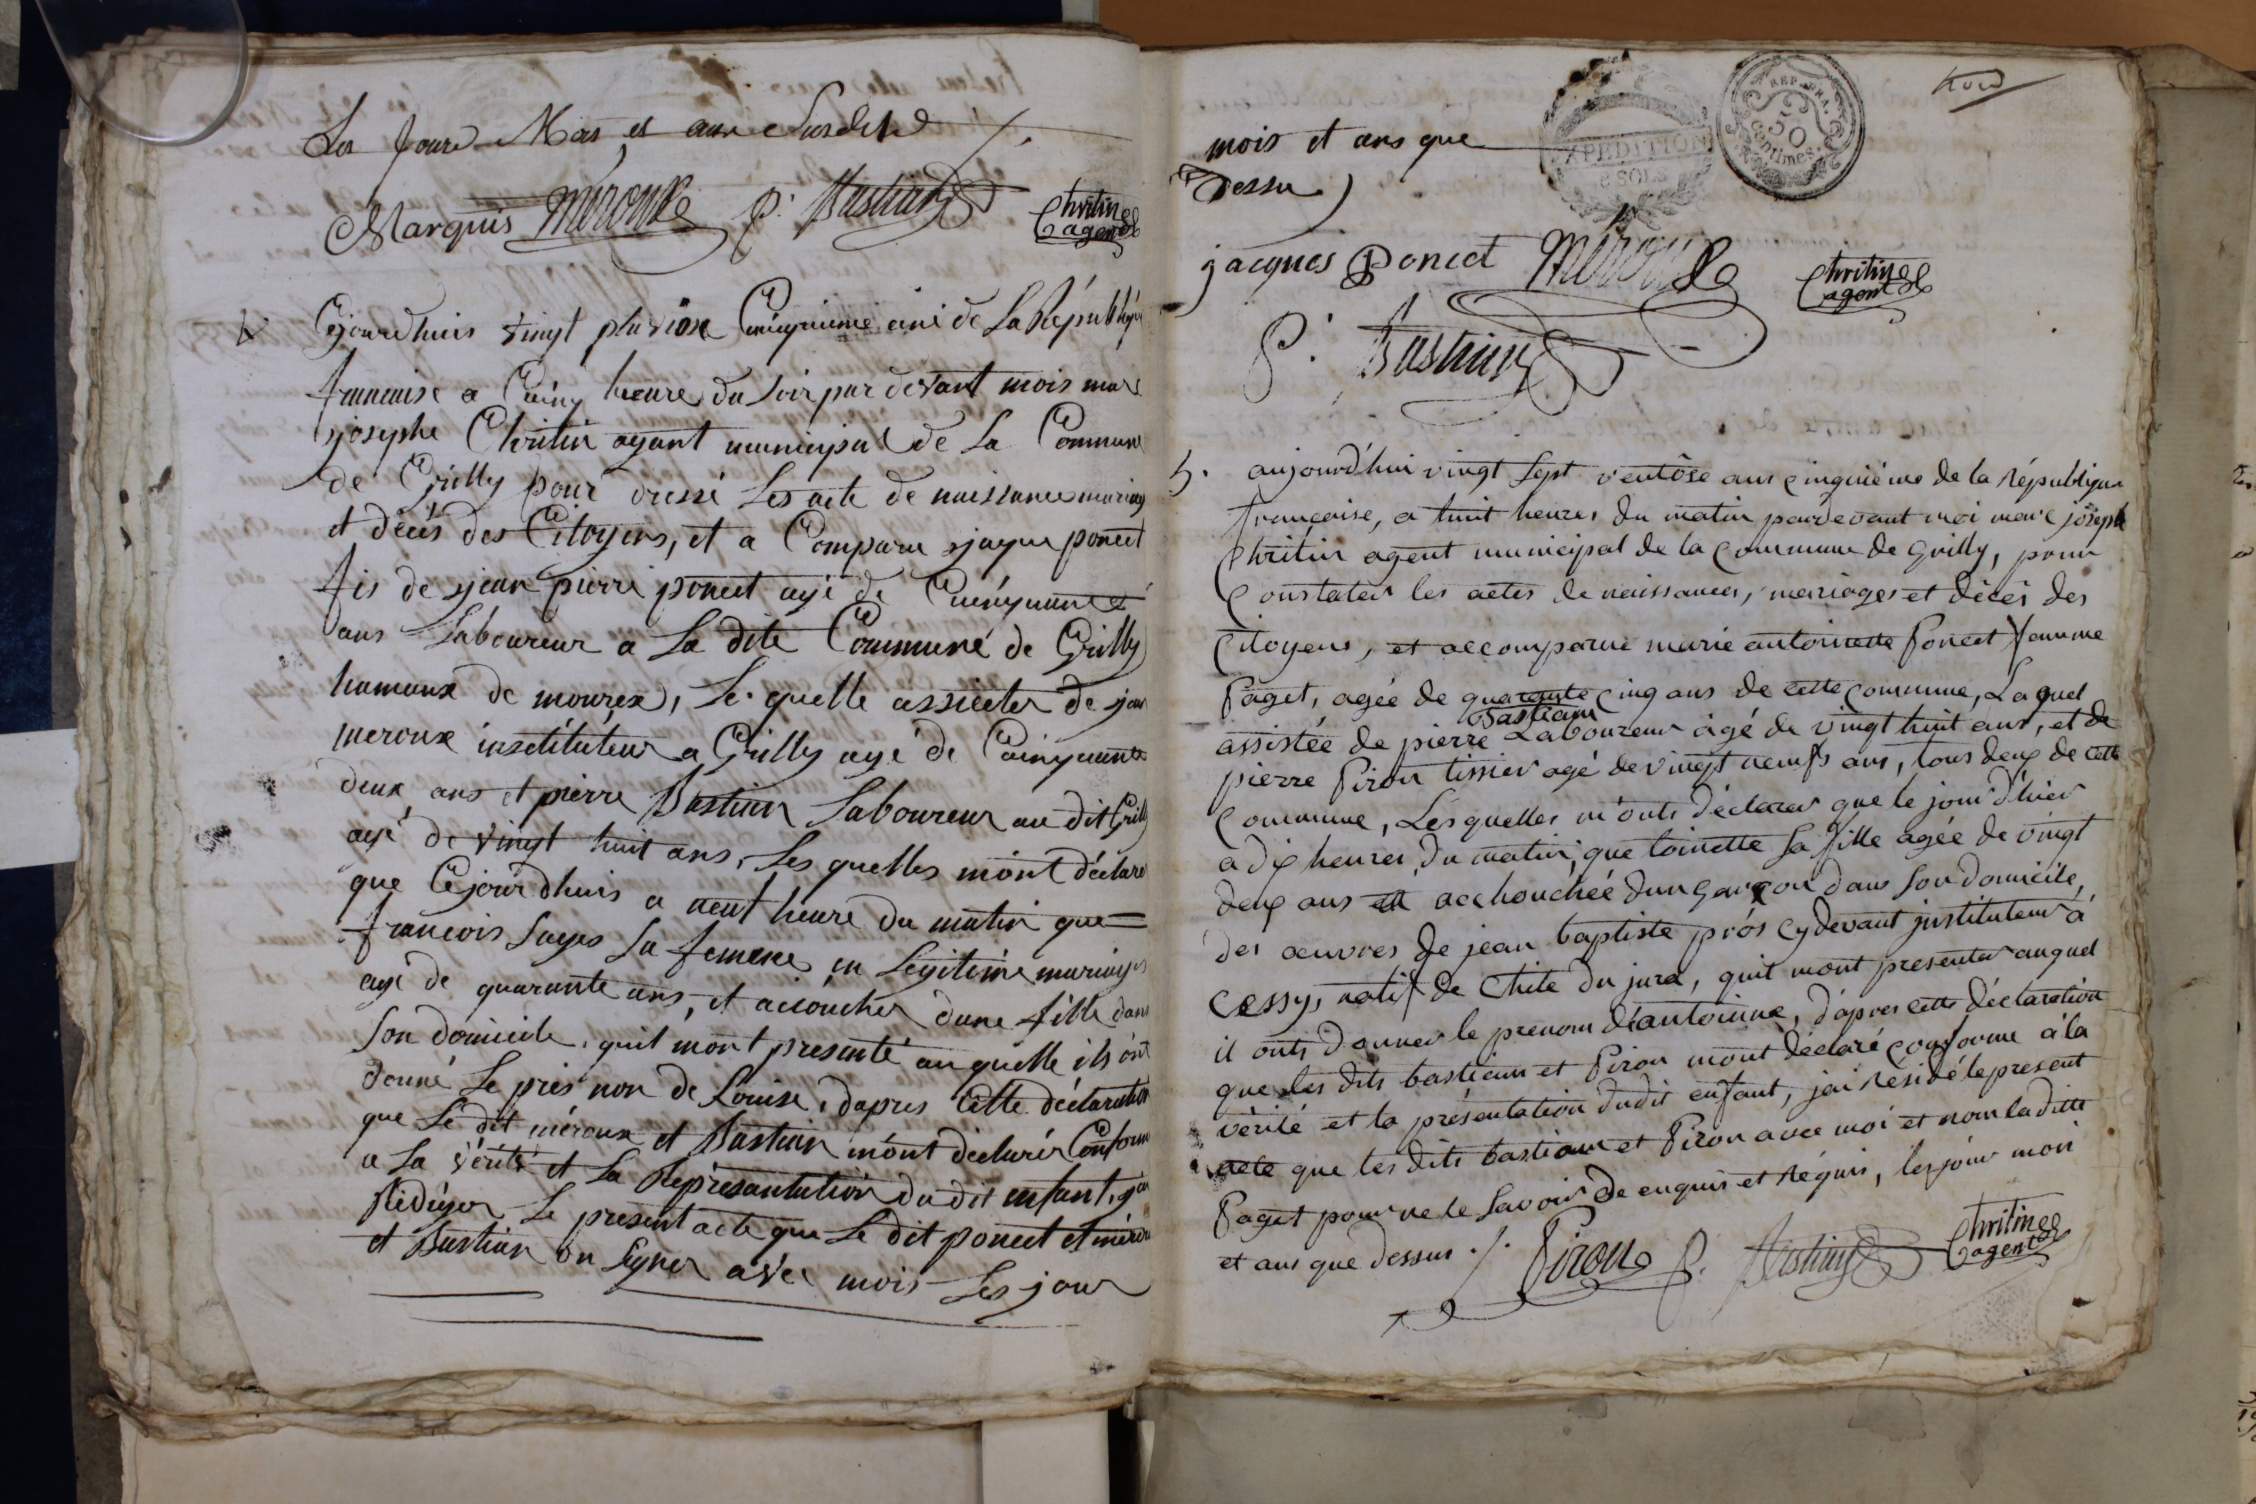 Les Jours Mois et ans Susdits
Marquis Meroux P. Bastian Chritin
agent
Cejourdhuis vingt pluviose Cinquieme ané de La Républiq
francaise a Cinq heure du soir par devant mois marc
josephe Chritin agant municipal de La Commune
de Grilly pour dressé Les acte de naissance mariag
et décés des Citoyens, et a Comparu jaque poncet
fis de jean pierre poncet agé de Cinquante
ans Laboureur a La dite Commune de Grilly
hamaux de mourex, Le quelle assister de jan
meroux inséctituteur a Grilly agé de Cinquante
deux ans et pierre Bastian Laboureur au dit Grilly
agé de vingt huit ans, Les quelles mont déclaré
que Cejour dhuis a neuf heure du matin que=
francois Sages Sa femme en Legitime mariages
agé de quarante ans, et accoucher dune fille dans
Son domicile, quil mont presenté au quelle ils ont
donné Le prés non de Louise, dapres Cette déclaration
que Le dit méroux et Bastian mont declarér Conforme
a La vérité et La Représantation du dit enfant, jai
Rédiger Le present acte que Le dit poncet et mérou
et Bastian on Signer avec mois Les jour
mois et ans que
Dessu
EXPEDITION
6 SOLS
REP. FRA.
50
centimes.
jacques Poncet Meroux Chritin
agent
P. Bastian
5. aujourd'hui vingt Sept ventôse ans cinquième de la République
française, a huit heures du matin pardevant moi marc joseph
Chritin agent municipal de la Commune de Grilly, pour
Constater les actes de naissances, mariages et décès des
Citoyens, et accomparue marie antoinette Poncet femme
Paget, agée de quarante cinq ans de cette Commune, Laquel
Bastian
assistée de pierre Laboureur agé de vingt huit ans, et de
pierre Piron tissier agé de vingt neufs ans, tous deux de cette
Commune, Lesquelles m'onts déclarer que le jour d'hier
a dix heures, du matin, que toinette Sa fille agée de vingt
deux ans est acchouchée dun garçon dans Son domicile,
des œuvres de jean baptiste prós cydevant instituteur à
Cessy, natif de Chite du jura, quil mont presenter auquel
il onts donner le prenom d'antoinne, d'apres cette déclaration
que les dits bastian et Piron mont déclaré conforme à la
vérité et la présentation dudit enfant, jai résidé le present
acte que les dits bastian et Piron avec moi et non la ditte
Paget pour ne le Savoir de enquis et réquis, les jour mois
et ans que dessus ./. Piron P. Bastian Chritin
agent